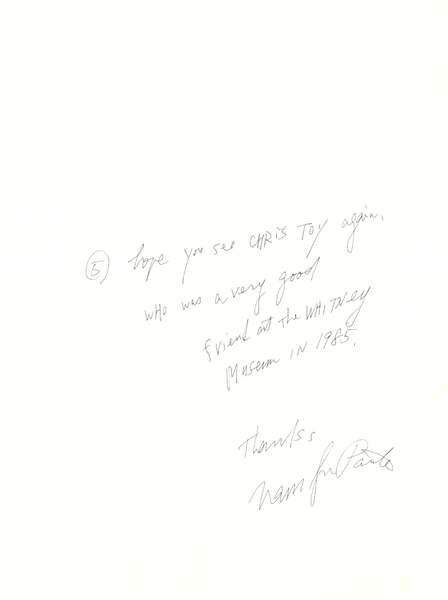 ⑤ hope you see CHRIS TOY again,
who was a very good
friend at the WHITNEY
Museum IN 1985.
Thanks.
Nam June Paik